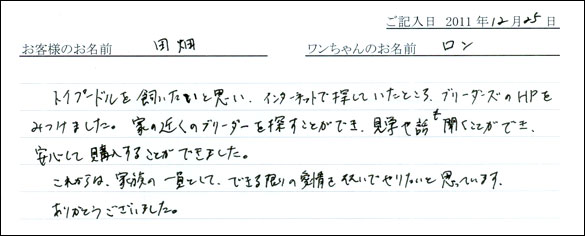 ご記入日 2011年12月25日
お客様のお名前 田畑 ワンちゃんのお名前 ロン
トイプードルを飼いたいと思い、インターネットで探していたところ、ブリーダーズのHPを
みつけました。家の近くのブリーダーを探すことができ、見学や話も聞くことができ、
安心して購入することができました。
これからは、家族の一員として、できる限りの愛情を注いでやりたいと思っています。
ありがとうございました。